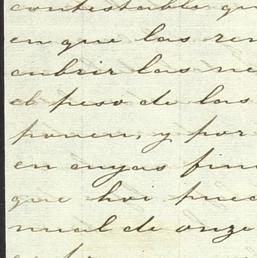 contestable qu
en que las ren
cubrir las ne
el peso de las
ponen, y por
en cuyas fin
que hoi pued
nual de onze